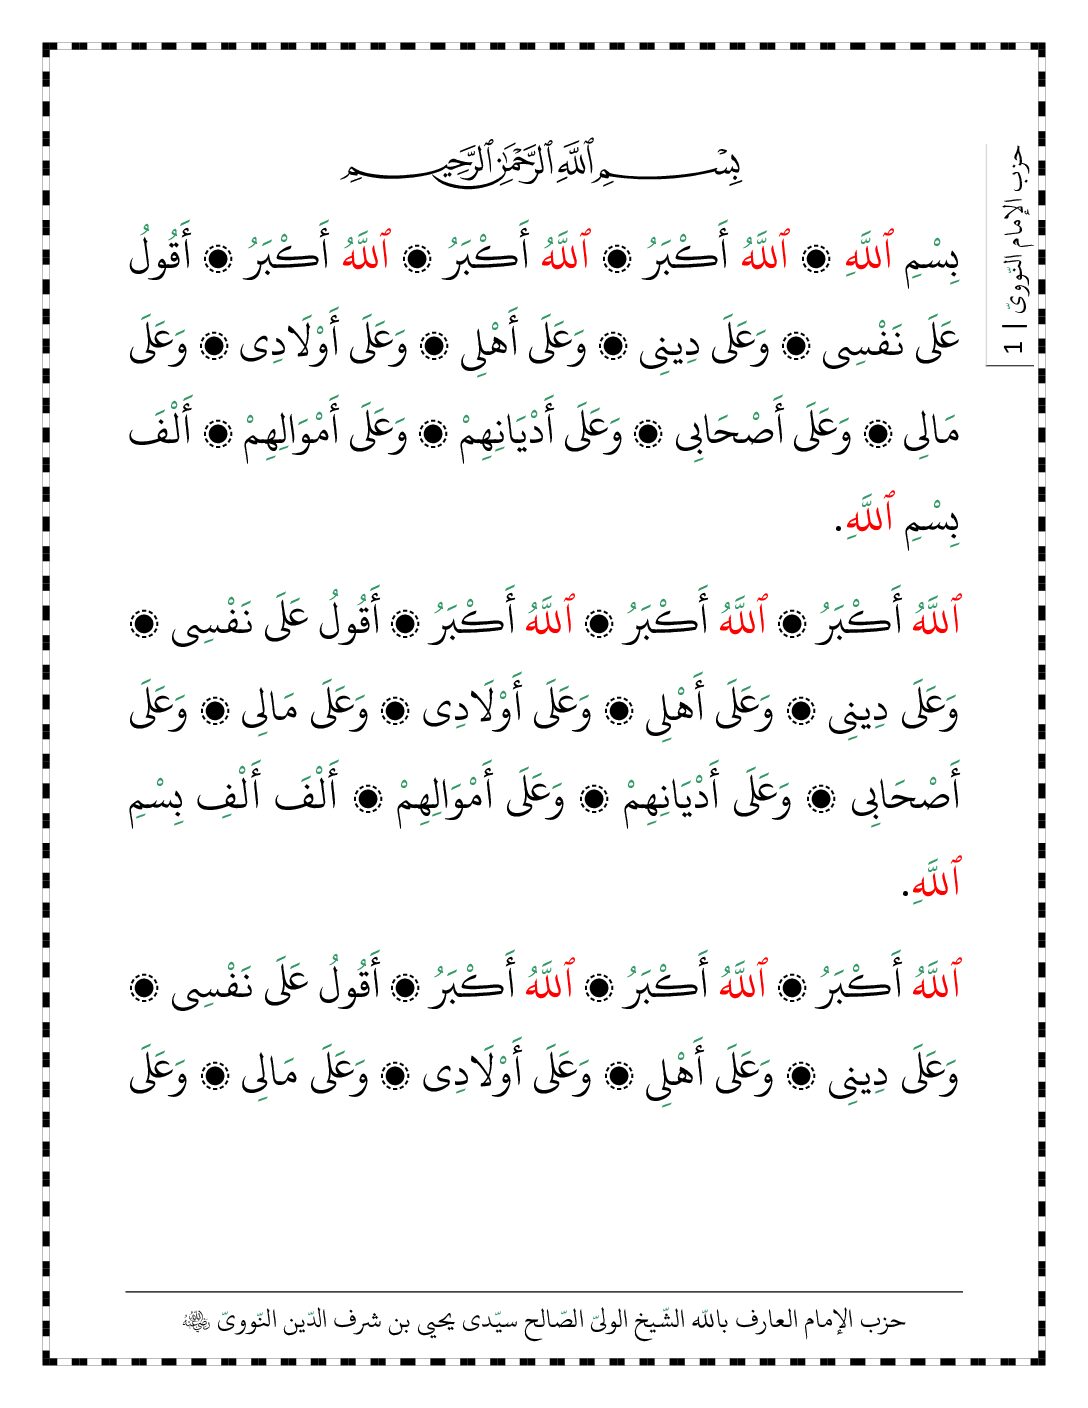 حزب الإمام النّووىّ | 1
بِسْمِ ٱللَّهِ ٱلرَّحْمَٰنِ ٱلرَّحِيمِ
بِسْمِ ٱللَّهِ ۞ ٱللَّهُ أَكْبَرُ ۞ ٱللَّهُ أَكْبَرُ ۞ ٱللَّهُ أَكْبَرُ ۞ أَقُولُ
عَلَى نَفْسِى ۞ وَعَلَى دِينِى ۞ وَعَلَى أَهْلِى ۞ وَعَلَى أَوْلَادِى ۞ وَعَلَى
مَالِى ۞ وَعَلَى أَصْحَابِى ۞ وَعَلَى أَدْيَانِهِمْ ۞ وَعَلَى أَمْوَالِهِمْ ۞ أَلْفَ
بِسْمِ ٱللَّهِ.
ٱللَّهُ أَكْبَرُ ۞ ٱللَّهُ أَكْبَرُ ۞ ٱللَّهُ أَكْبَرُ ۞ أَقُولُ عَلَى نَفْسِى ۞
وَعَلَى دِينِى ۞ وَعَلَى أَهْلِى ۞ وَعَلَى أَوْلَادِى ۞ وَعَلَى مَالِى ۞ وَعَلَى
أَصْحَابِى ۞ وَعَلَى أَدْيَانِهِمْ ۞ وَعَلَى أَمْوَالِهِمْ ۞ أَلْفَ أَلْفِ بِسْمِ
ٱللَّهِ.
ٱللَّهُ أَكْبَرُ ۞ ٱللَّهُ أَكْبَرُ ۞ ٱللَّهُ أَكْبَرُ ۞ أَقُولُ عَلَى نَفْسِى ۞
وَعَلَى دِينِى ۞ وَعَلَى أَهْلِى ۞ وَعَلَى أَوْلَادِى ۞ وَعَلَى مَالِى ۞ وَعَلَى
حزب الإمام العارف باللّه الشّيخ الولىّ الصّالح سيّدى يحيى بن شرف الدّين النّووىّ ﷺ